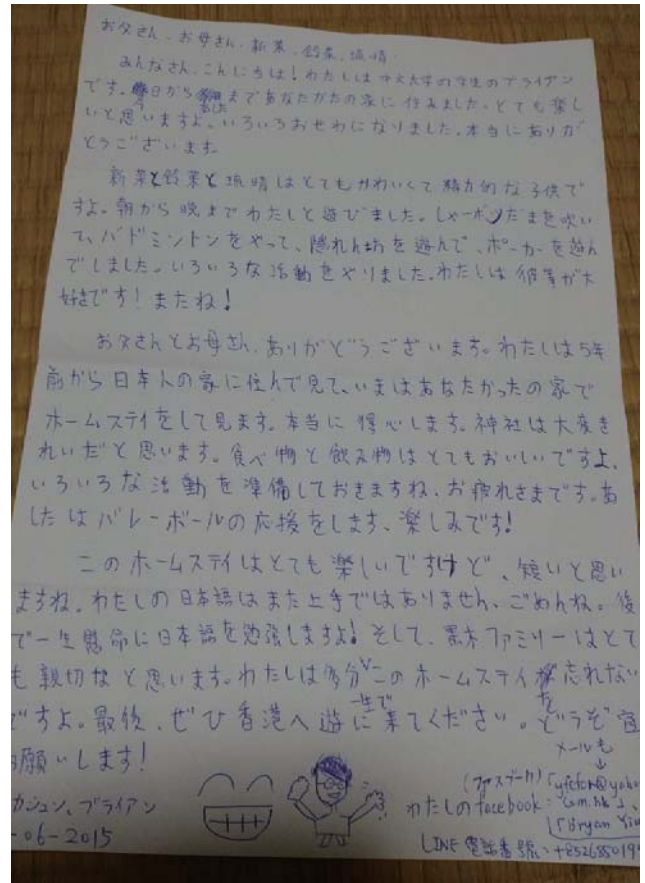 お父さん、お母さん、新菜、鈴菜、琉晴、
みんなさん、こんにちは！わたしは中文大学の学生のブライアン
です。今日からあしたまであなたがたの家に住みました。とても楽し
いと思いますよ。いろいろおせわになりました。本当にありが
とうございます。
新菜と鈴菜と琉晴はとてもかわいくて精力的な子供で
すよ。朝から晩までわたしと遊びました。しゃーボンだまを吹い
て、バドミントンをやって、隠れん坊を遊んで、ポーカーを遊ん
でしました。いろいろな活動をやりました。わたしは彼等が大
好きです！またね！
お父さんとお母さん、ありがどうございます。わたしは5年
前から日本人の家に住んで見て、いまはあなたかったの家で
ホームステイをして見ます。本当に得心します。神社は大変き
れいだと思います。食べ物と飲み物はとてもおいしいですよ。
いろいろな活動を準備しておきますね、お疲れさまです。あ
したはバレーボールの応援をします、楽しみです！
このホームステイはとても楽しいですけど、短いと思い
ますね。わたしの日本語はまた上手ではありません、ごめんね。後
で一生懸命に日本語を勉強しますよ！そして、黒木ファミリーはとて
も親切なと思います。わたしは多分このホームステイを一生で忘れない
ですよ。最後、ぜひ香港へ遊に来てください。どうぞ宜
お願いします！
カジュン、ブライアン
-06-2015
メールも
↓
(フェスブーク)
わたしのfacebook:
com.hk」、
LINE 電話番號: